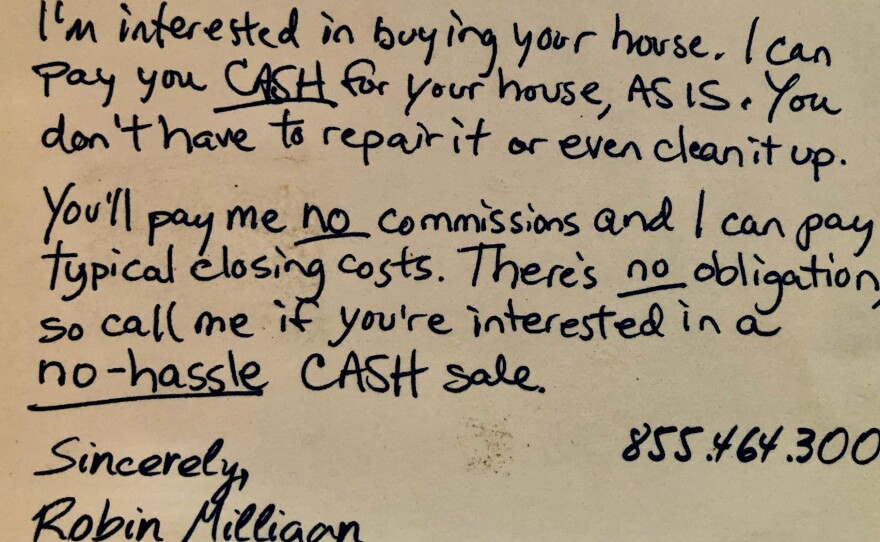 I'm interested in buying your house. I can
pay you CASH for your house, AS IS. You
don't have to repair it or even clean it up.
You'll pay me no commissions and I can pay
typical closing costs. There's no obligation,
so call me if you're interested in a
no-hassle CASH sale.
855.464.300
Sincerely,
Robin Milligan